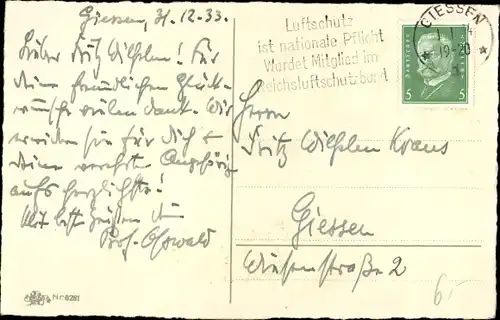 Giessen, 31.12.33.
Lieber Fritz Wilhelm! Für
Deine freundlichen Glück-
wünsche vielen Dank. Wir
erwidern sie für Dich u.
Deine verehrten Angehörig.
aufs herzlichste!
Mit besten Grüßen Dein
Prof.
Luftschutz
ist nationale Pflicht
Werdet Mitglied im
Reichsluftschutzbund
GIESSEN
19-20
5 5
Herrn
Fritz Wilhelm Kraus
Giessen
Wiesenstraße 2
Nr. 0281
6,-